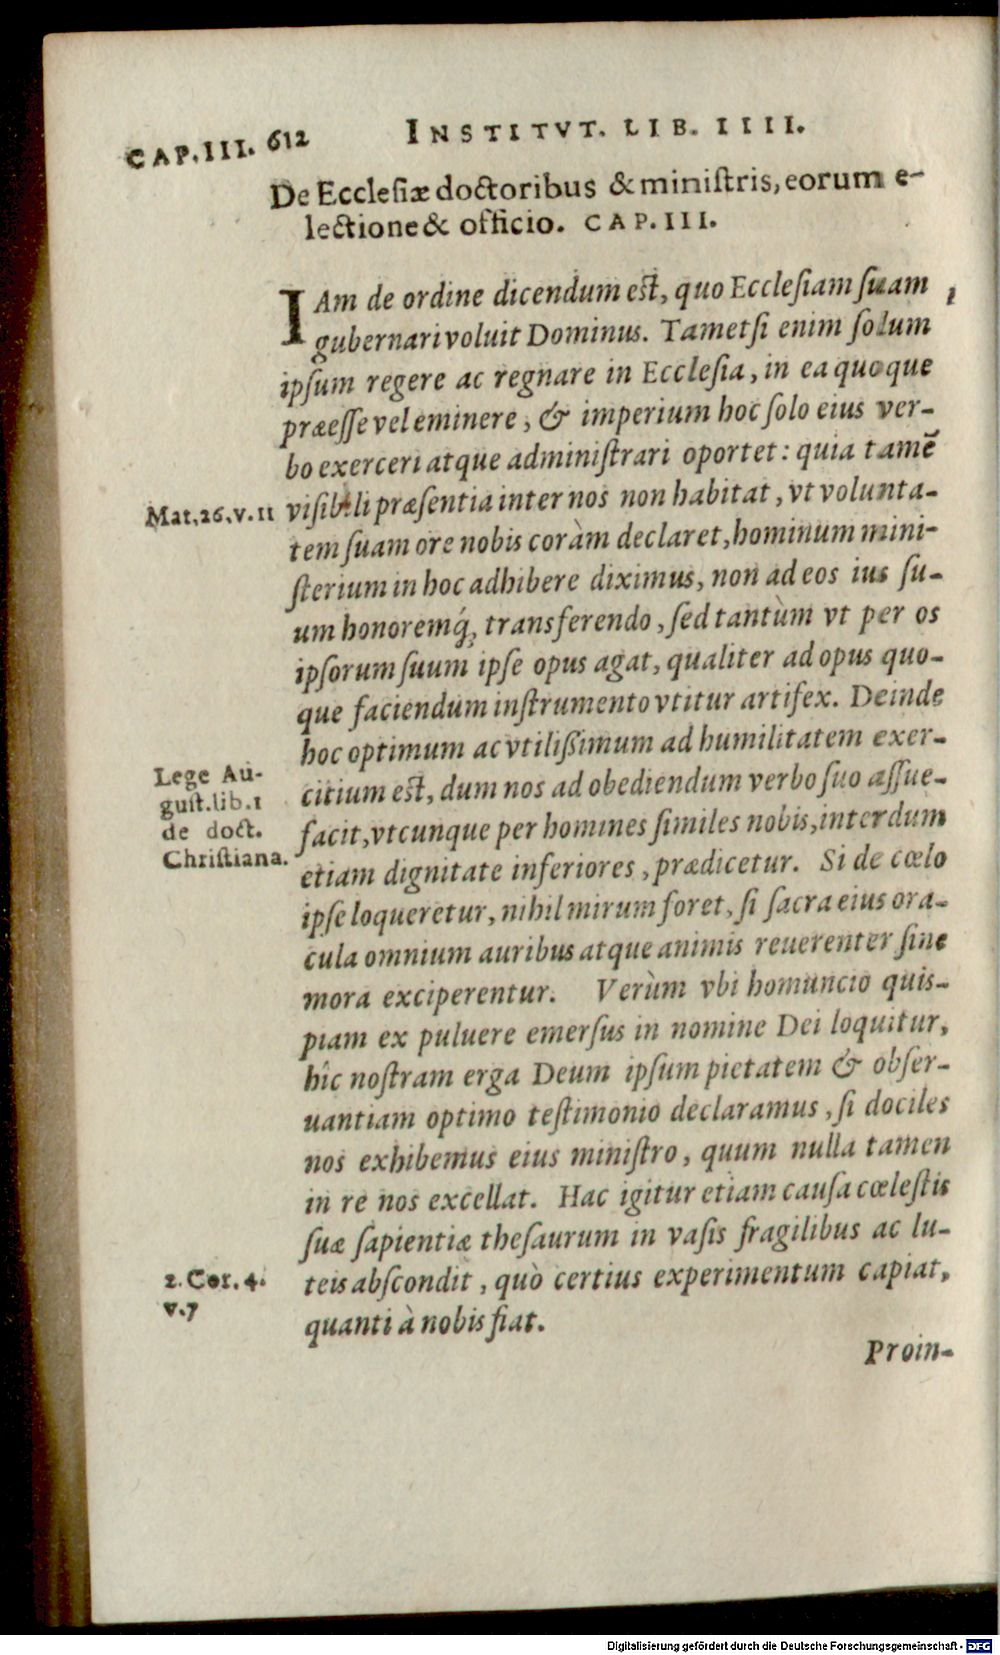 CAP.III. 612 INSTITVT. LIB. IIII.
De Ecclesiæ doctoribus & ministris, eorum e-
lectione & officio. CAP. III.
IAm de ordine dicendum est, quo Ecclesiam suam 1
gubernari voluit Dominus. Tametsi enim solum
ipsum regere ac regnare in Ecclesia, in ea quoque
præesse vel eminere, & imperium hoc solo eius ver-
bo exerceri atque administrari oportet: quia tamẽ
Mat.26.v.11
visibili præsentia inter nos non habitat, vt volunta-
tem suam ore nobis coràm declaret, hominum mini-
sterium in hoc adhibere diximus, non ad eos ius su-
um honoremq́;, transferendo, sed tantùm vt per os
ipsorum suum ipse opus agat, qualiter ad opus quo-
que faciendum instrumento vtitur artifex. Deinde
hoc optimum ac vtilißimum ad humilitatem exer-
Lege Au-
gust.lib.1
de doct.
Christiana.
citium est, dum nos ad obediendum verbo suo assue-
facit, vtcunque per homines similes nobis, interdum
etiam dignitate inferiores, prædicetur. Si de cœlo
ipse loqueretur, nihil mirum foret, si sacra eius ora-
cula omnium auribus atque animis reuerenter sine
mora exciperentur. Verùm vbi homuncio quis-
piam ex puluere emersus in nomine Dei loquitur,
hîc nostram erga Deum ipsum pietatem & obser-
uantiam optimo testimonio declaramus, si dociles
nos exhibemus eius ministro, quum nulla tamen
in re nos excellat. Hac igitur etiam causa cœlestis
suæ sapientiæ thesaurum in vasis fragilibus ac lu-
2.Cor.4.
v.7
teis abscondit, quò certius experimentum capiat,
quanti à nobis fiat.
Proin-
Digitalisierung gefördert durch die Deutsche Forschungsgemeinschaft - DFG